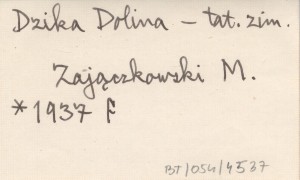 Dzika Dolina – tat. zim.
Zajączkowski M.
*1937 F
BT/054/4537